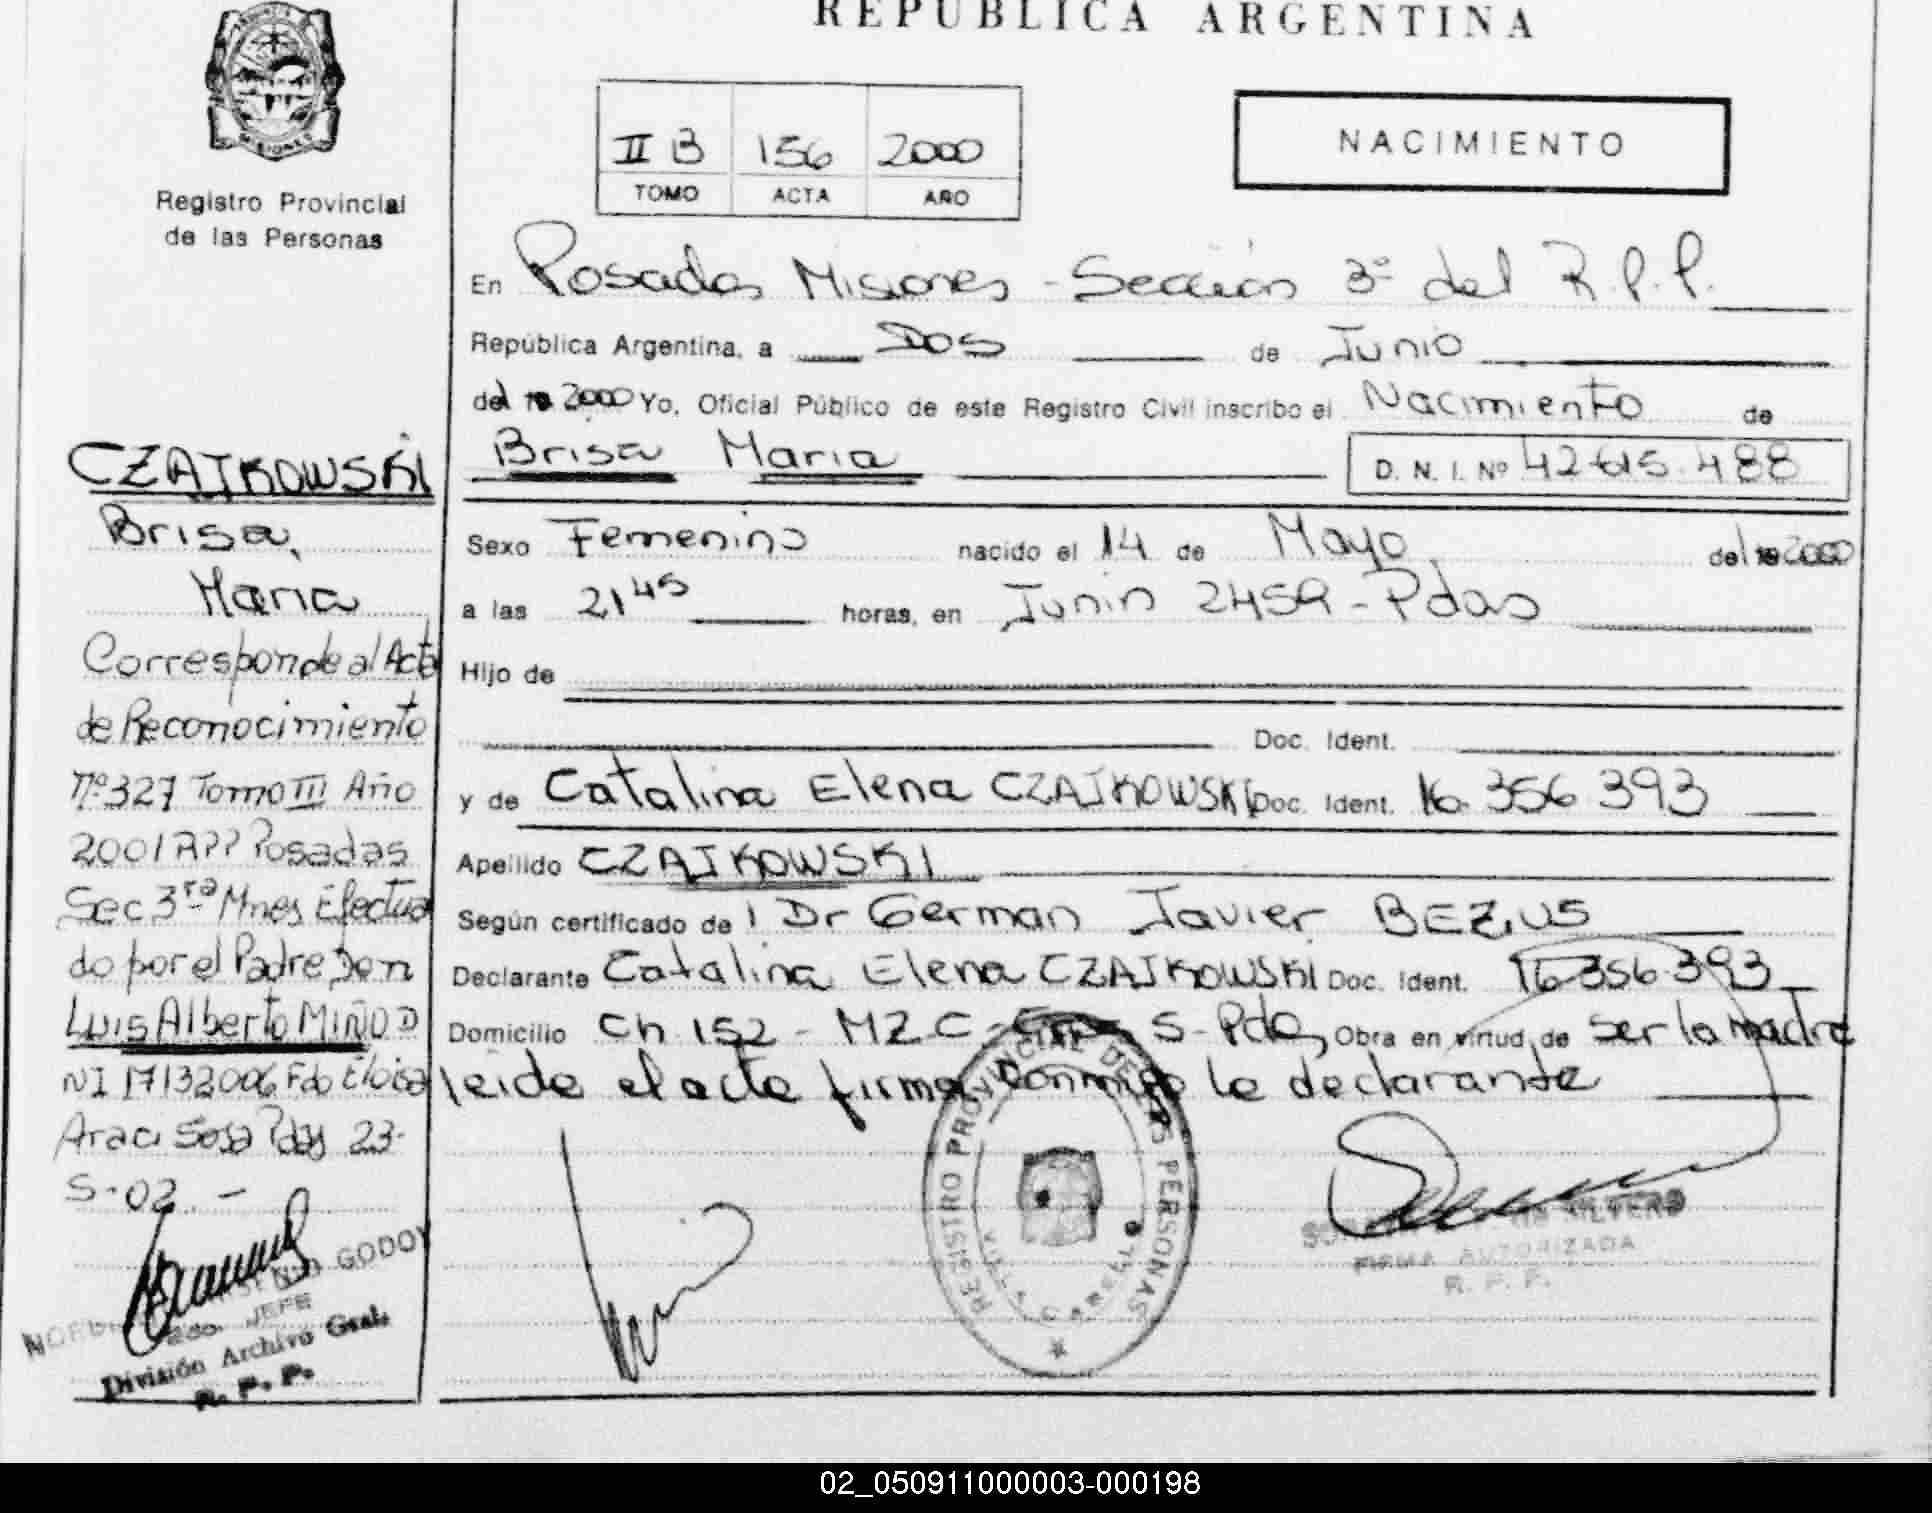 REPUBLICA ARGENTINA
MISIONES
Registro Provincial
de las Personas
II B 156 2000
TOMO ACTA AÑO
NACIMIENTO
En Posadas Misiones - Sección 3º del R.P.P.
República Argentina, a Dos de Junio
del 2000 Yo, Oficial Público de este Registro Civil inscribo el Nacimiento de
Brisa Maria D. N. I. Nº 42.615.488
Sexo Femenino nacido el 14 de Mayo del 2000
a las 21 45 horas, en Junin 2459 - Pdas
Hijo de
Doc. Ident.
y de Catalina Elena CZAJKOWSKI Doc. Ident. 16.356.393
Apellido CZAJKOWSKI
Según certificado de Dr German Javier BEZUS
Declarante Catalina Elena CZAJKOWSKI Doc. Ident. 16.356.393
Domicilio Ch 152 - MZ C - S - Pdas Obra en virtud de ser la madre
leida el acta firma conmigo la declarante
CZAJKOWSKI
Brisa,
Maria
Corresponde al Acta
de Reconocimiento
Nº 327 Tomo III Año
2001 RPP Posadas
Sec 3ra Mnes Efectua
do por el Padre Don
Luis Alberto MIÑO D
NI 17132006 Fdo Eloisa
Araci Sosa Pdas 23-
5-02.-
GODOY
JEFE
División Archivo Gral.
R. P. P.
REGISTRO PROVINCIAL DE LAS PERSONAS
VILLA CABELLO
FIRMA AUTORIZADA
R. P. P.
02_050911000003-000198